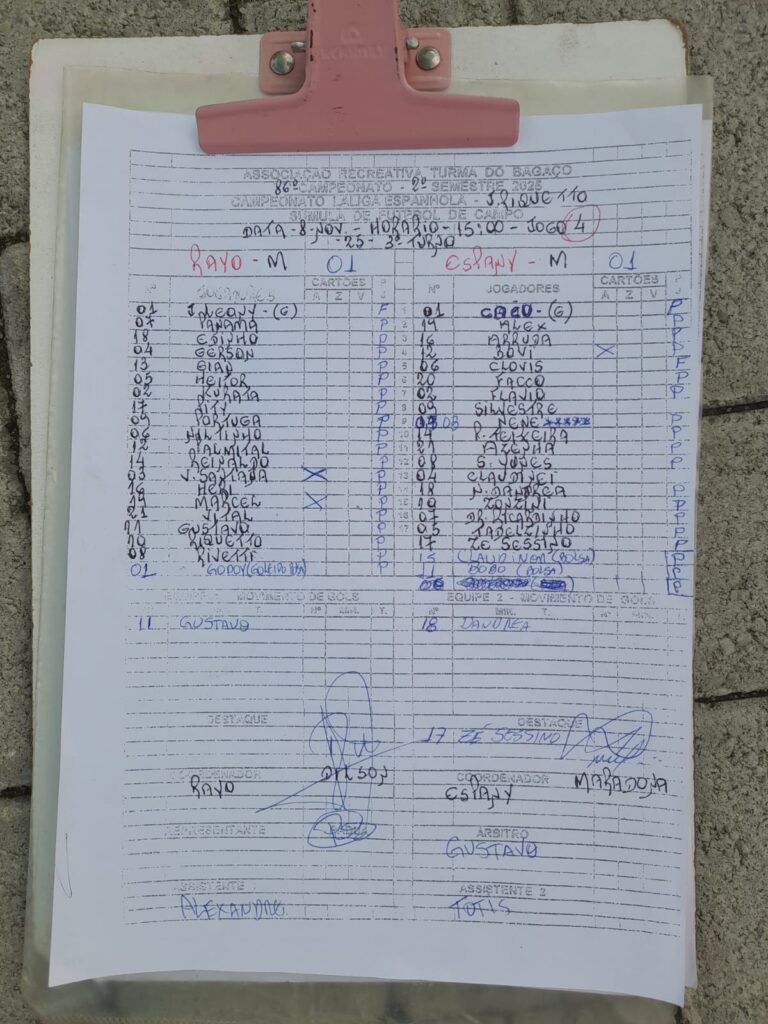 ASSOCIAÇÃO RECREATIVA TURMA DO BAGAÇO
86º CAMPEONATO - 2º SEMESTRE 2025
CAMPEONATO LALIGA ESPANHOLA - J. RIQUETTO
SÚMULA DE FUTEBOL DE CAMPO
DATA - 8 - NOV. - HORARIO - 15:00 - JOGO 4
- 25 - 3º TURNO
RAYO - M 01 ESPANY - M 01
CARTÕES P CARTÕES P
Nº JOGADORES A Z V J Nº JOGADORES A Z V J
01 (G) F 1 01 (G) P
07 PANAMÁ P 2 19 ALEX P
18 EDINHO P 3 16 ARRUDA P
04 GERSON P 4 12 BOVI X P
13 GIAN P 5 06 CLOVIS F
05 HEITOR P 6 20 FACCO P
02 P 7 02 FLAVIO P
17 P 8 09 SILVESTRE
09 PORTUGA P 9 03 NENE P
06 NILTINHO P 14 R. TEIXEIRA P
12 PALMITAL P 21 AZENHA P
14 REINALDO P 08 S. NUNES P
03 V. SANTANA X P 04 CLAUDINEI
16 P 18 N. DANDREA P
19 MARCEL X P 10 ZONZINI P
21 VITAL P 07 DR RICARDINHO P
11 GUSTAVO P 05 P
10 RIQUETTO P 17 ZE SESSINO P
08 RIVETTE P 15 (BOLSA) P
01 GODOY (GOLEIRO BOLSA) P 11 BOBO (BOLSA)
EQUIPE MOVIMENTO DE GOLS EQUIPE 2 - MOVIMENTO DE GOLS
11 GUSTAVO 18 DANDREA
DESTAQUE DESTAQUE
17 ZÉ SESSINO
COORDENADOR DILSON COORDENADOR MARADONA
RAYO ESPANY
REPRESENTANTE ÁRBITRO
GUSTAVO
ASSISTENTE 1 ASSISTENTE 2
ALEXANDRE TOTIS